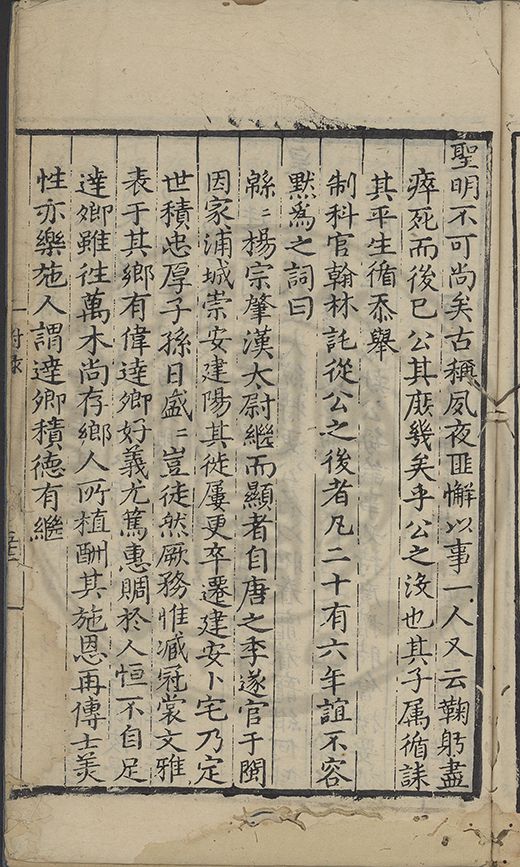 聖明不可尚矣古稱夙夜匪懈以事一人又云鞠躬盡
瘁死而後已公其庶幾矣乎公之没也其子属循誄
其平生循忝舉
制科官翰林託從公之後者凡二十有六年誼不容
默爲之詞曰
緜〻楊宗肇漢太尉繼而顯者自唐之季遂官于閩
因家浦城崇安建陽其徙屢更卒遷建安卜宅乃定
世積忠厚子孫日盛〻豈徒然厥務惟臧冠裳文雅
表于其鄉有偉達卿好義尤篤惠賙於人恒不自足
達卿雖徃萬木尚存鄉人所植酬其施恩再傳士美
性亦樂施人謂達卿積德有繼
附录